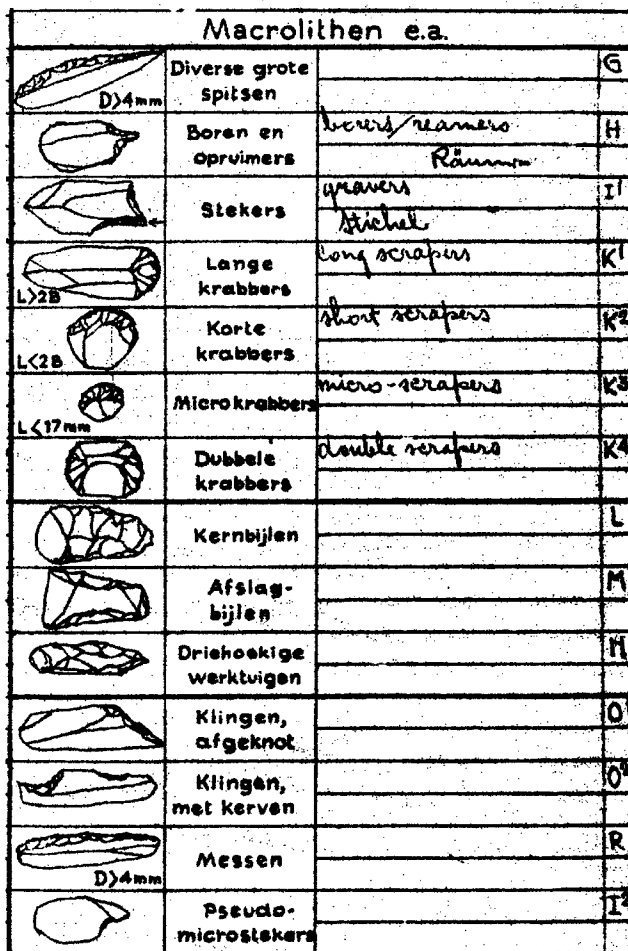 Macrolithen e.a.
D>4mm
Diverse grote
spitsen
G
Boren en
opruimers
borers/reamers
H
Stekers
gravers
Stichel
I1
L>2B
Lange
krabbers
long scrapers
K1
L<2B
Korte
krabbers
short scrapers
K2
L<17mm
Microkrabbers
micro-scrapers
K3
Dubbele
krabbers
double scrapers
K4
Kernbijlen
L
Afslag-
bijlen
M
Driehoekige
werktuigen
Klingen,
afgeknot
Klingen,
met kerven
D>4mm
Messen
R
Pseudo-
microstekers